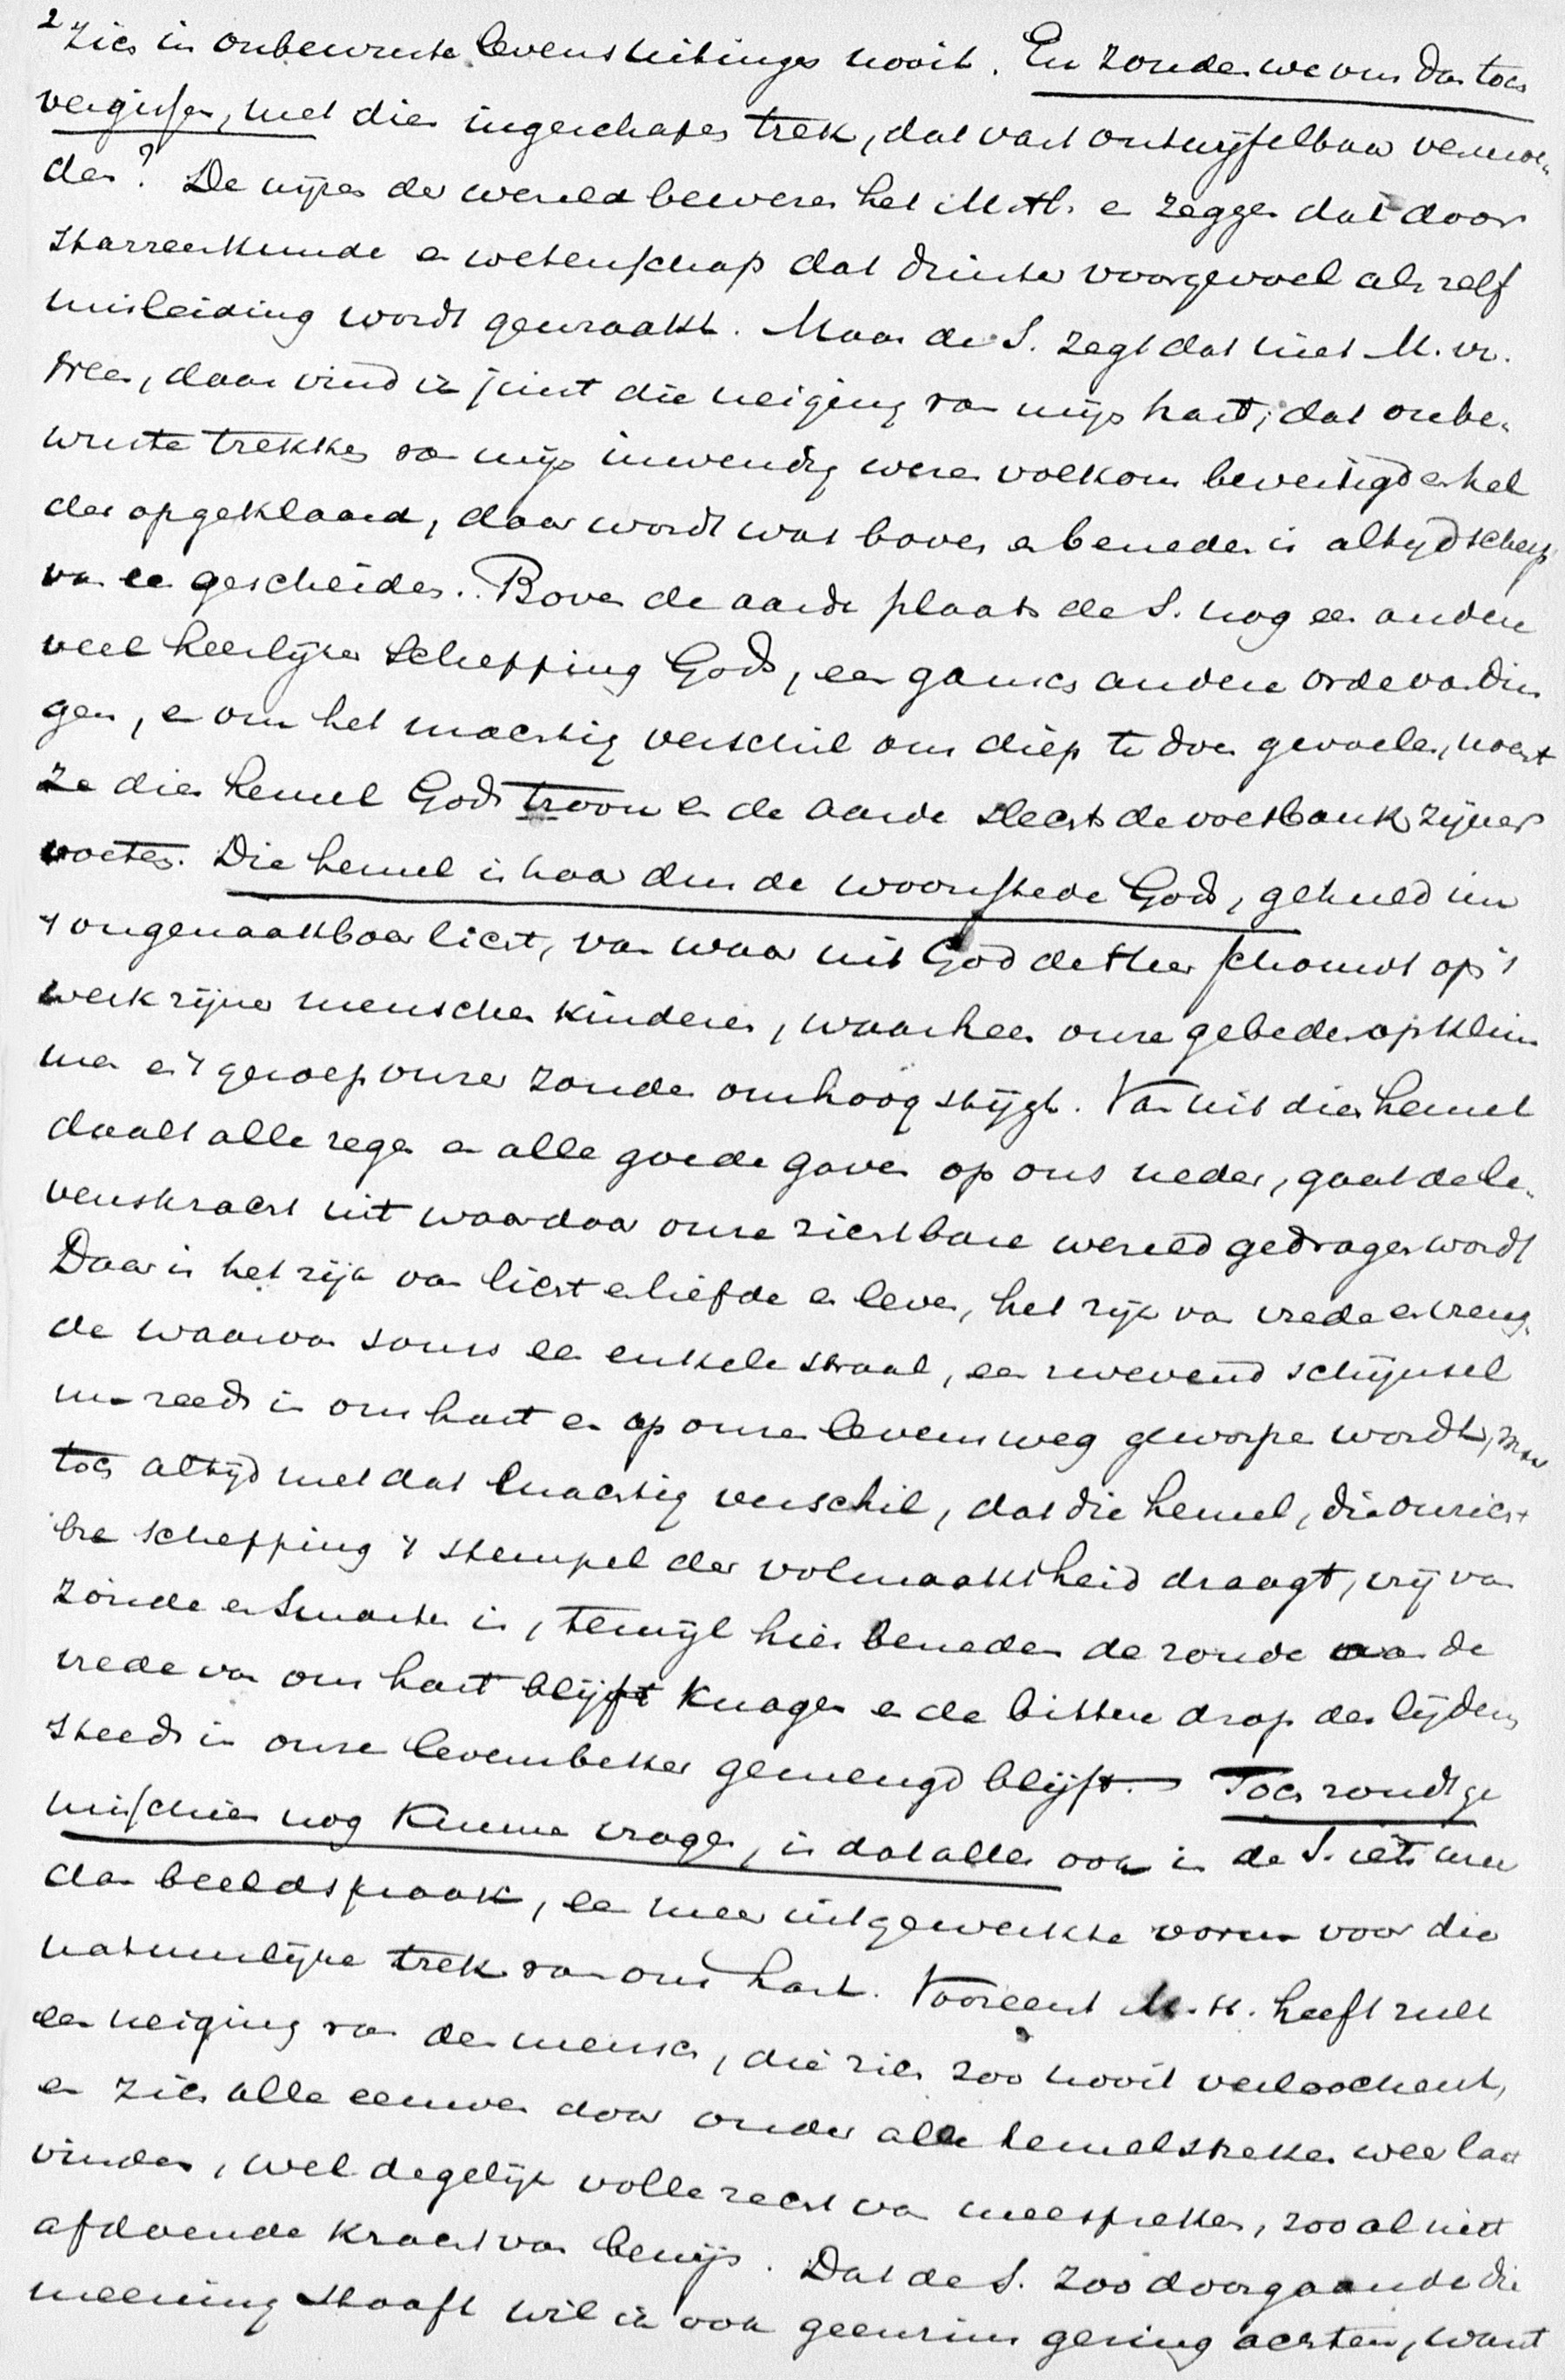 2 zich in onbewuste levensuitingen nooit. En zouden we ons dan toch
vergissen, met dien ingeschapen trek, dat vast ontwijfelbaar vermoe-
den? De wijzen der wereld beweren het M.H. en zeggen dat door
starrenkunde en wetenschap dat duister voorgevoel als zelf
misleiding wordt gewraakt. Maar de S. zegt dat niet M. vr.
Neen, daar vind ik juist die neiging van mijn hart, dat onbe-
wuste trekken van mijn inwendig wezen volkom bevestigd en hel
der opgeklaard, daar wordt wat boven en beneden is altijd scherp
van een gescheiden. Boven de aarde plaats de S. nog een andere
veel heerlijker Schepping Gods, een gansch andere orde van din
gen, en om het machtig verschil ons diep te doen gevoelen, noemt
ze dien hemel Gods troon en de aarde slechts de voetbank zijner
voeten. Die hemel is haar dus de woonstede Gods, gehuld in
't ongenaakbaar licht, van waar uit God de Heer schouwt op 't
werk zijner menschen kinderen, waarheen onze gebeden opklim
men en 't geroep onzer zonden omhoog stijgt. Van uit dien hemel
daalt alle zegen en alle goede gaven op ons neder, gaat de le-
venskracht uit waardoor onze zichtbare wereld gedragen wordt
Daar is het rijk van licht en liefde en leven, het rijk van vrede en vreug-
de waarvan soms een enkele straal, een zwevend schijnsel
nu reeds in ons hart en op onzen levensweg geworpen wordt, maar
toch altijd met dat machtig verschil, dat die hemel, die onzicht
bre schepping 't stempel der volmaaktheid draagt, vrij van
zonde en smarten is, terwijl hier beneden de zonde aan de
vrede van ons hart blijft knagen en de bittere drop des lijdens
steeds in onze levensbeker gemengd blijft. – Toch zoudt ge
misschien nog kunnen vragen, is dat alles ook in de S. iets meer
dan beeldspraak, een meer uitgewerkte vorm voor die
natuurlijke trek van ons hart. Vooreerst M.H. heeft zulk
een neiging van den mensch, die zich zoo nooit verloochent,
en zich alle eeuwen door onder alle hemelstreken weer laat
vinden, wel degelijk volle recht van meespreken, zoo al niet
afdoende kracht van bewijs. Dat de S. zoo doorgaande die
meening staaft wil ik ook geenszins gering achten, want